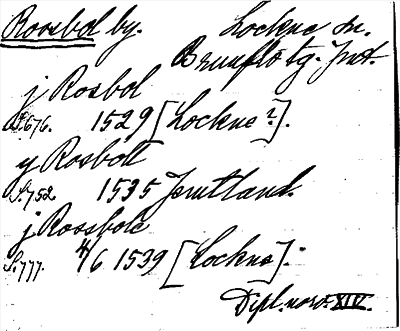 Rossbol by. Lockne sn.
Brunflo tg. Jmt.
j Rosbol
S. 676. 1529 [Lockne?].
y Rosbolt
S. 752 1535 Jemtland.
j Rossbole
S. 777. 4/6 1539 [Lockne].
Dipl. norv. XIV.